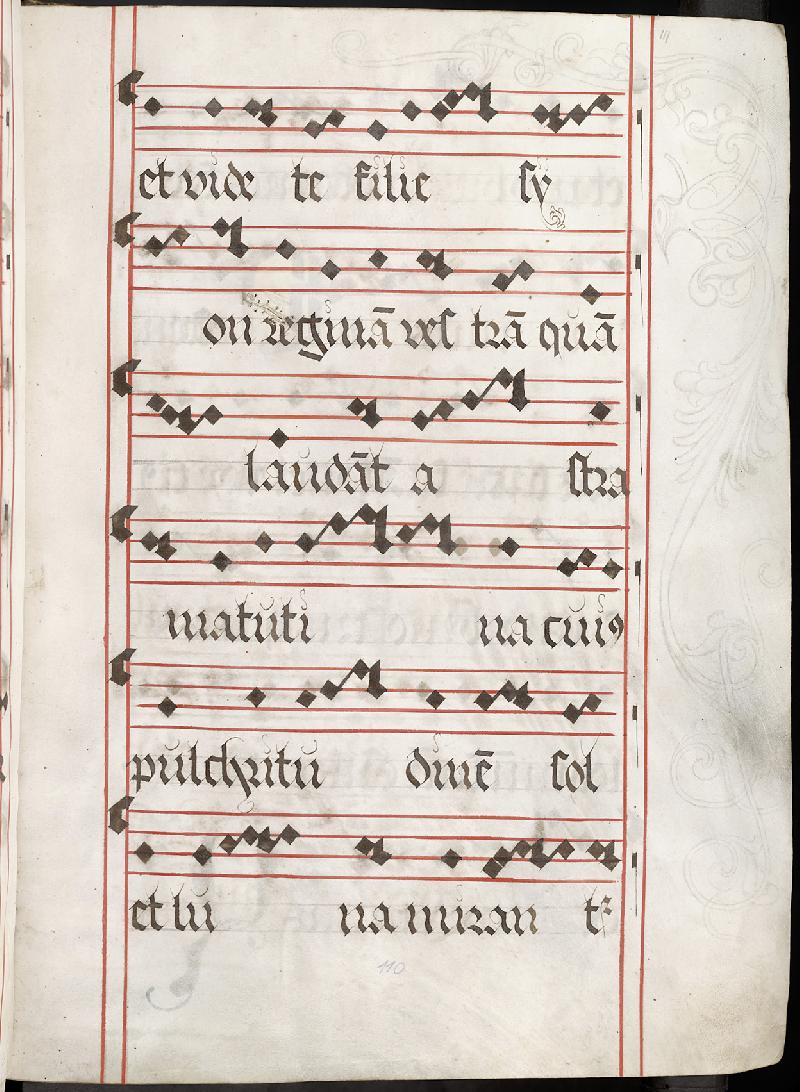 et vide te filie sy
on reginā ves trā quā
laudāt a stra
matuti na cui9
pulchritu dinē sol
et lu na miran tr
110